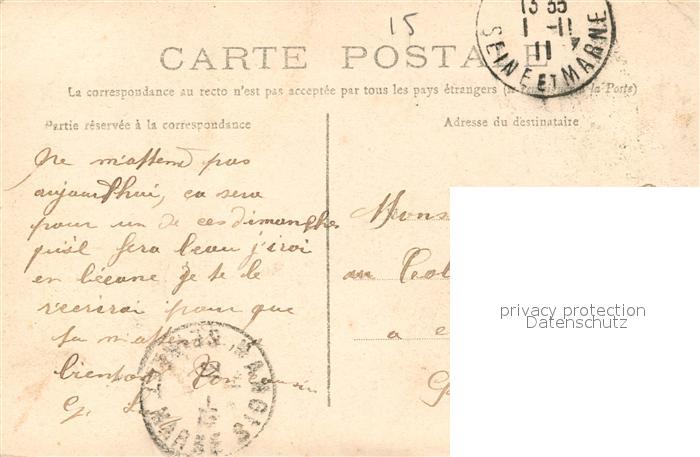 15
CARTE POSTALE
13 35
1-11
11
SEINE ET MARNE
La correspondance au recto n'est pas acceptée par tous les pays étrangers (à la Poste)
Partie réservée à la correspondance
Adresse du destinataire
Ne m'attend pas
aujourd'hui, ca sera
pour un de ces dimanche
qu'il fera beau j'iroi
en bécane je te le
recrirai pour que
tu
bientot Ton
G. L.
Mons
au
a
NANGIS
MARNE
privacy protection
Datenschutz